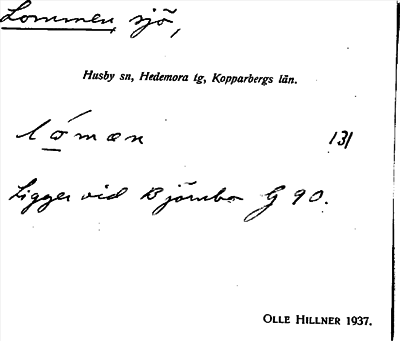 Lommen, sjö,
Husby sn, Hedemora tg, Kopparbergs län.
lómæn 131
Ligger vid Björnbo G 90.
OLLE HILLNER 1937.